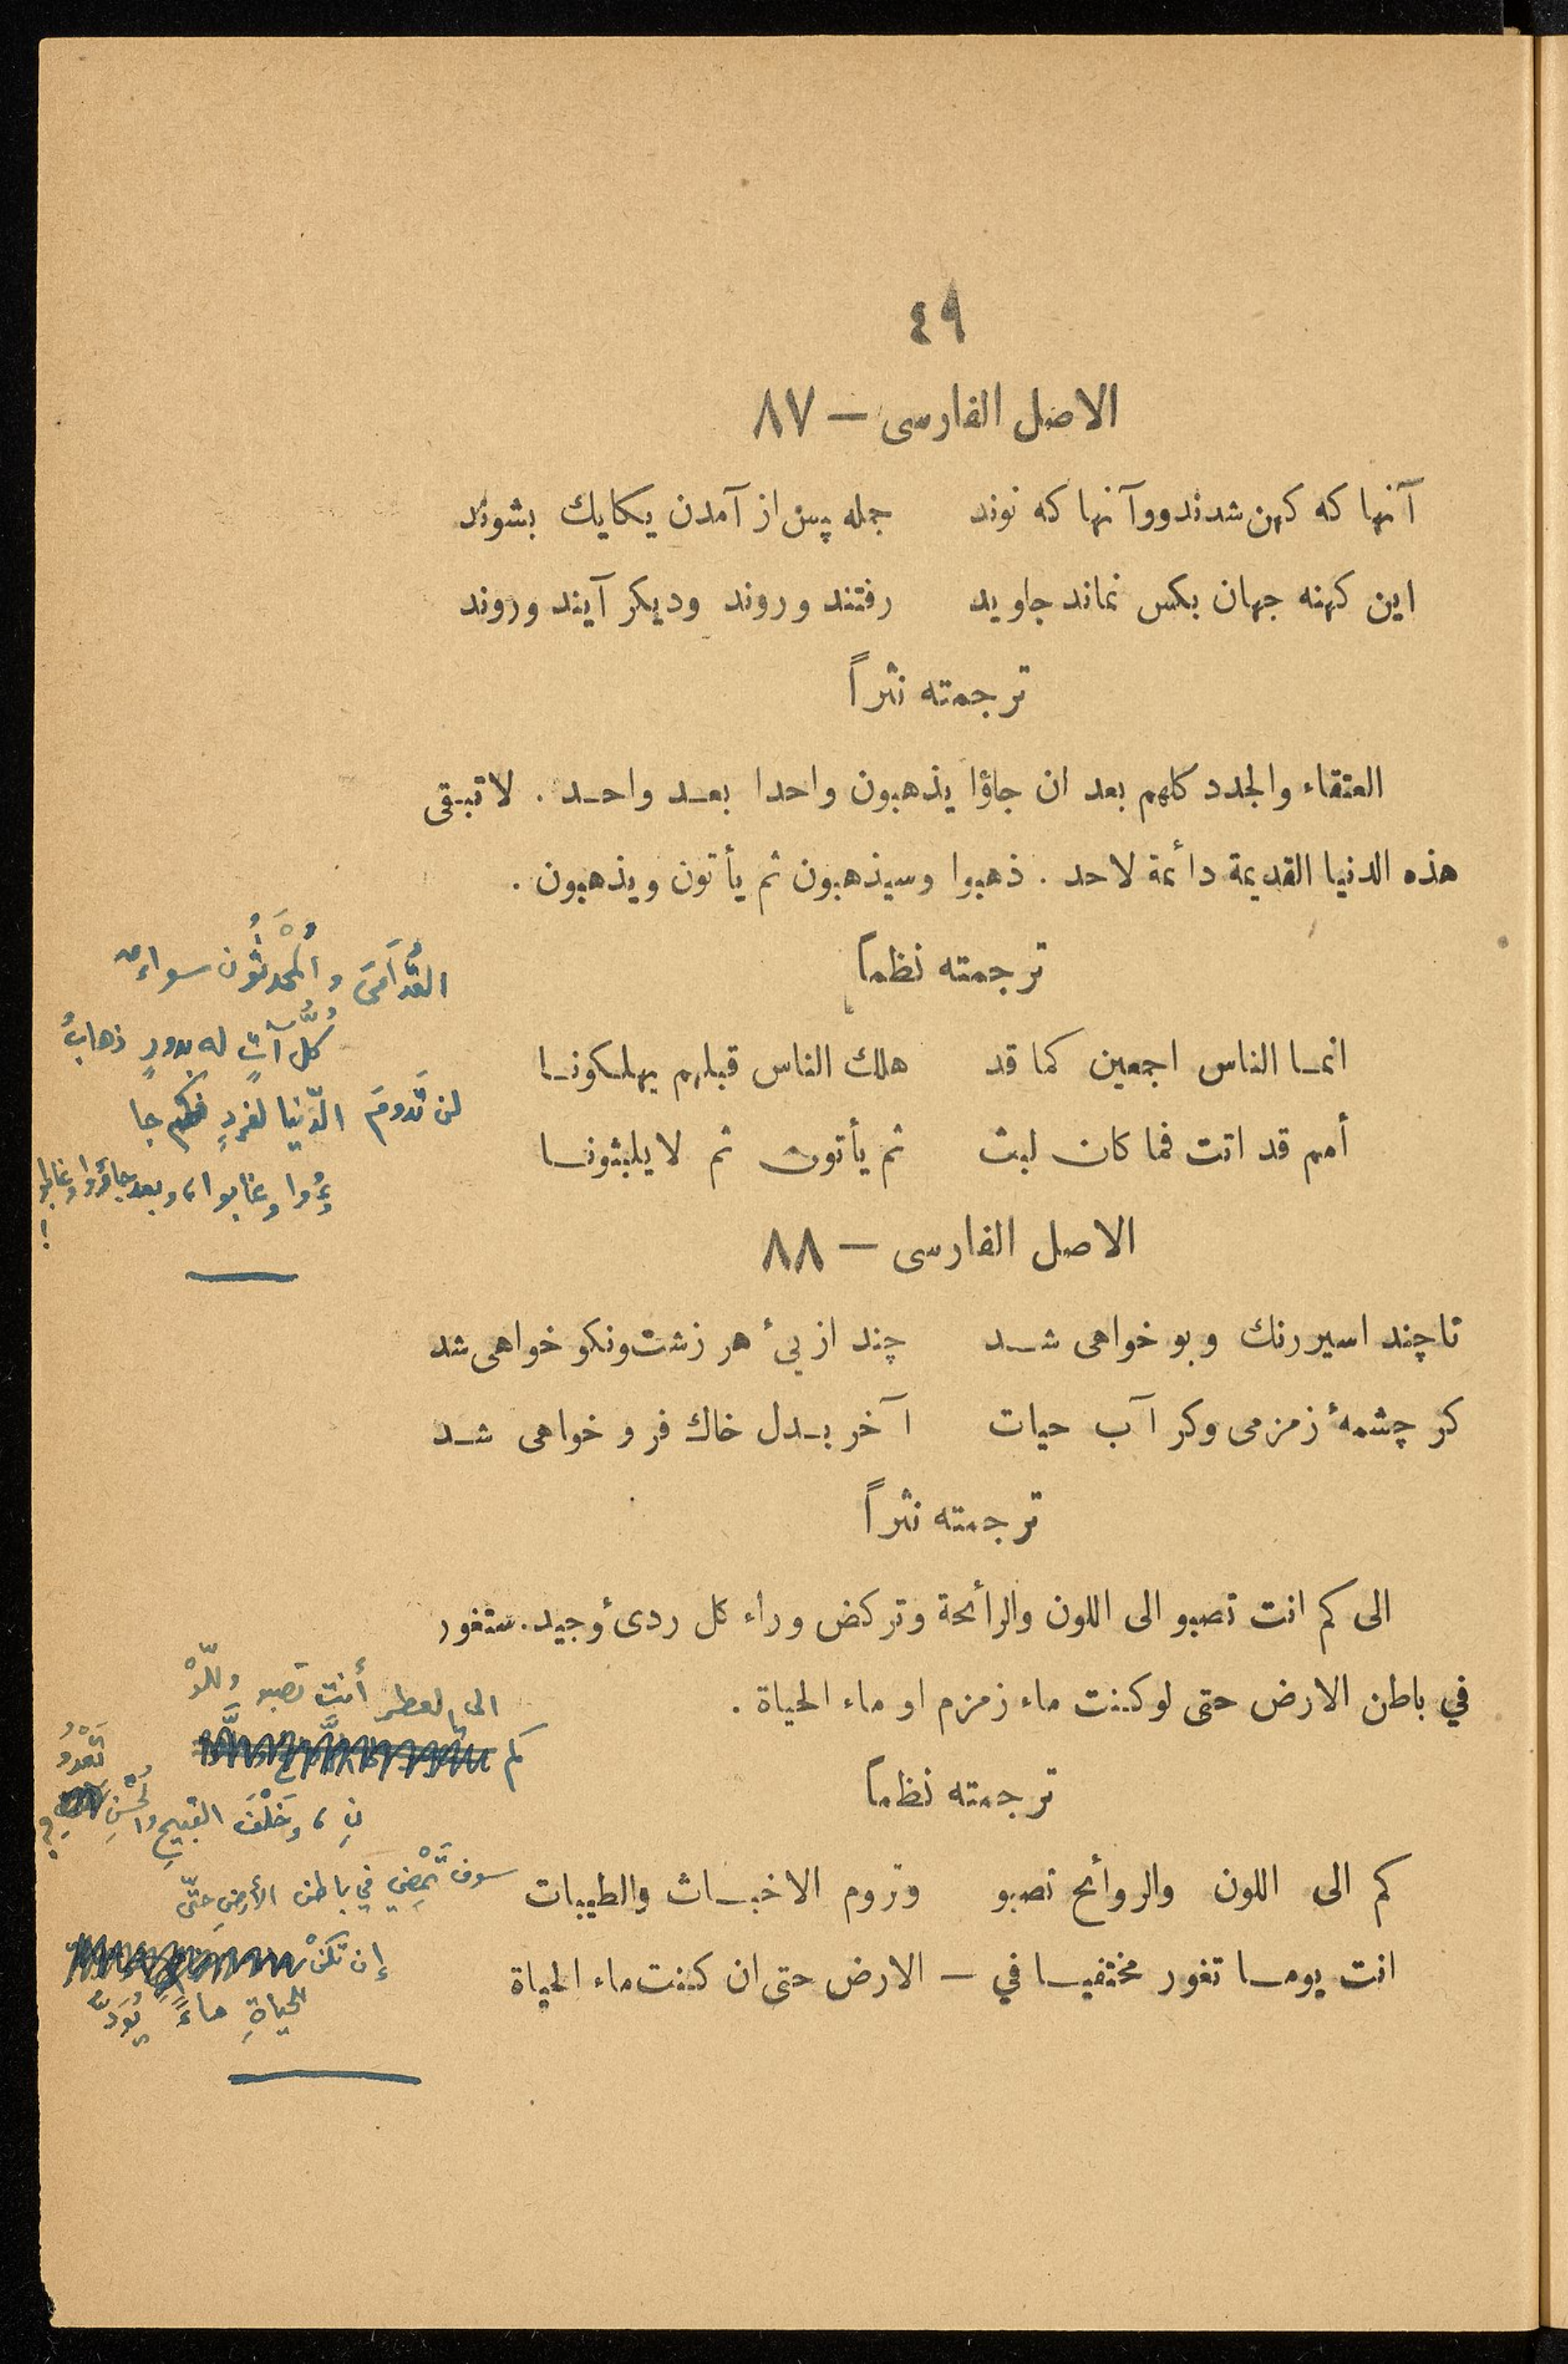 ٤٩
الاصل الفارسى — ٨٧
آنها كه كهن شدندووآنها كه نوند جمله پس از آمدن يكايك بشوند
اين كهنه جهان بكس نماند جاويد رفتند وروند وديكر آيند وروند
ترجمته نثراً
العتقاء والجدد كلهم بعد ان جاؤا يذهبون واحدا بعد واحد . لاتبقى
هذه الدنيا القديمة دائمة لاحد . ذهبوا وسيذهبون ثم يأتون ويذهبون .
ترجمته نظما
انما الناس اجمعين كما قد هلك الناس قبلهم يهلكونا
أمم قد اتت فما كان لبث ثم يأتون ثم لايلبثونا
القُدَامَى والمُحْدَثُون سواءٌ
كلُّ آتٍ له بدورٍ ذهابُ
لن تَدومَ الدّنيا لفردٍ فكم جا
ءُوا وغابوا، وبعد جاؤوا وغابوا
!
الاصل الفارسى — ٨٨
تاچند اسير رنك وبو خواهى شد چند از پىٔ هر زشت ونكو خواهى شد
كر چشمهٔ زمزمى وكر آب حيات آخر بدل خاك فرو خواهى شد
ترجمته نثراً
الى كم انت تصبو الى اللون والرأئحة وتركض وراء كل ردىٔ وجيد. ستغور
في باطن الارض حتى لو كنت ماء زمزم او ماء الحياة .
ترجمته نظما
كم الى اللون والروأئح تصبو وتروم الاخباث والطيبات
انت يوما تغور مختفيا في — الارض حتى ان كنت ماء الحياة
كم الى العطر أنت تصبو وللّوْ
نِ، وخَلْفَ القبيحِ والحُسْنِ تَعْدُو؟
سوف تَمْضِي في باطن الأرضِ حتّى
إن تكنْ
للحياةِ ماءً يُوَدُّ